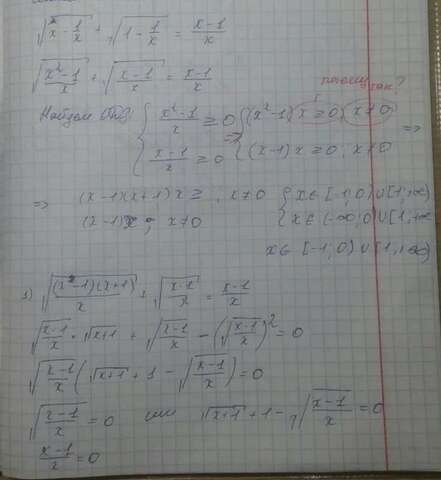 √(x - 1/x) + √(1 - 1/x) = (x-1)/x
√((x²-1)/x) + √((x-1)/x) = (x-1)/x
почему так?
Найдем ОДЗ: { (x²-1)/x ≥ 0 => { (x²-1) x ≥ 0; x ≠ 0 =>
{ (x-1)/x ≥ 0 { (x-1) x ≥ 0; x ≠ 0
=> (x-1)(x+1) x ≥ , x ≠ 0 { x ∈ [-1; 0) ∪ [1; +∞)
(x-1)x ; x ≠ 0 { x ∈ (-∞; 0) ∪ [1; +∞
x ∈ [-1; 0) ∪ [1; +∞)
1) √((x-1)(x+1)/x) + √((x-1)/x) = (x-1)/x
√((x-1)/x) · √(x+1) + √((x-1)/x) - (√((x-1)/x))² = 0
√((x-1)/x) (√(x+1) + 1 - √((x-1)/x)) = 0
√((x-1)/x) = 0 или √(x+1) + 1 - √((x-1)/x) = 0
(x-1)/x = 0